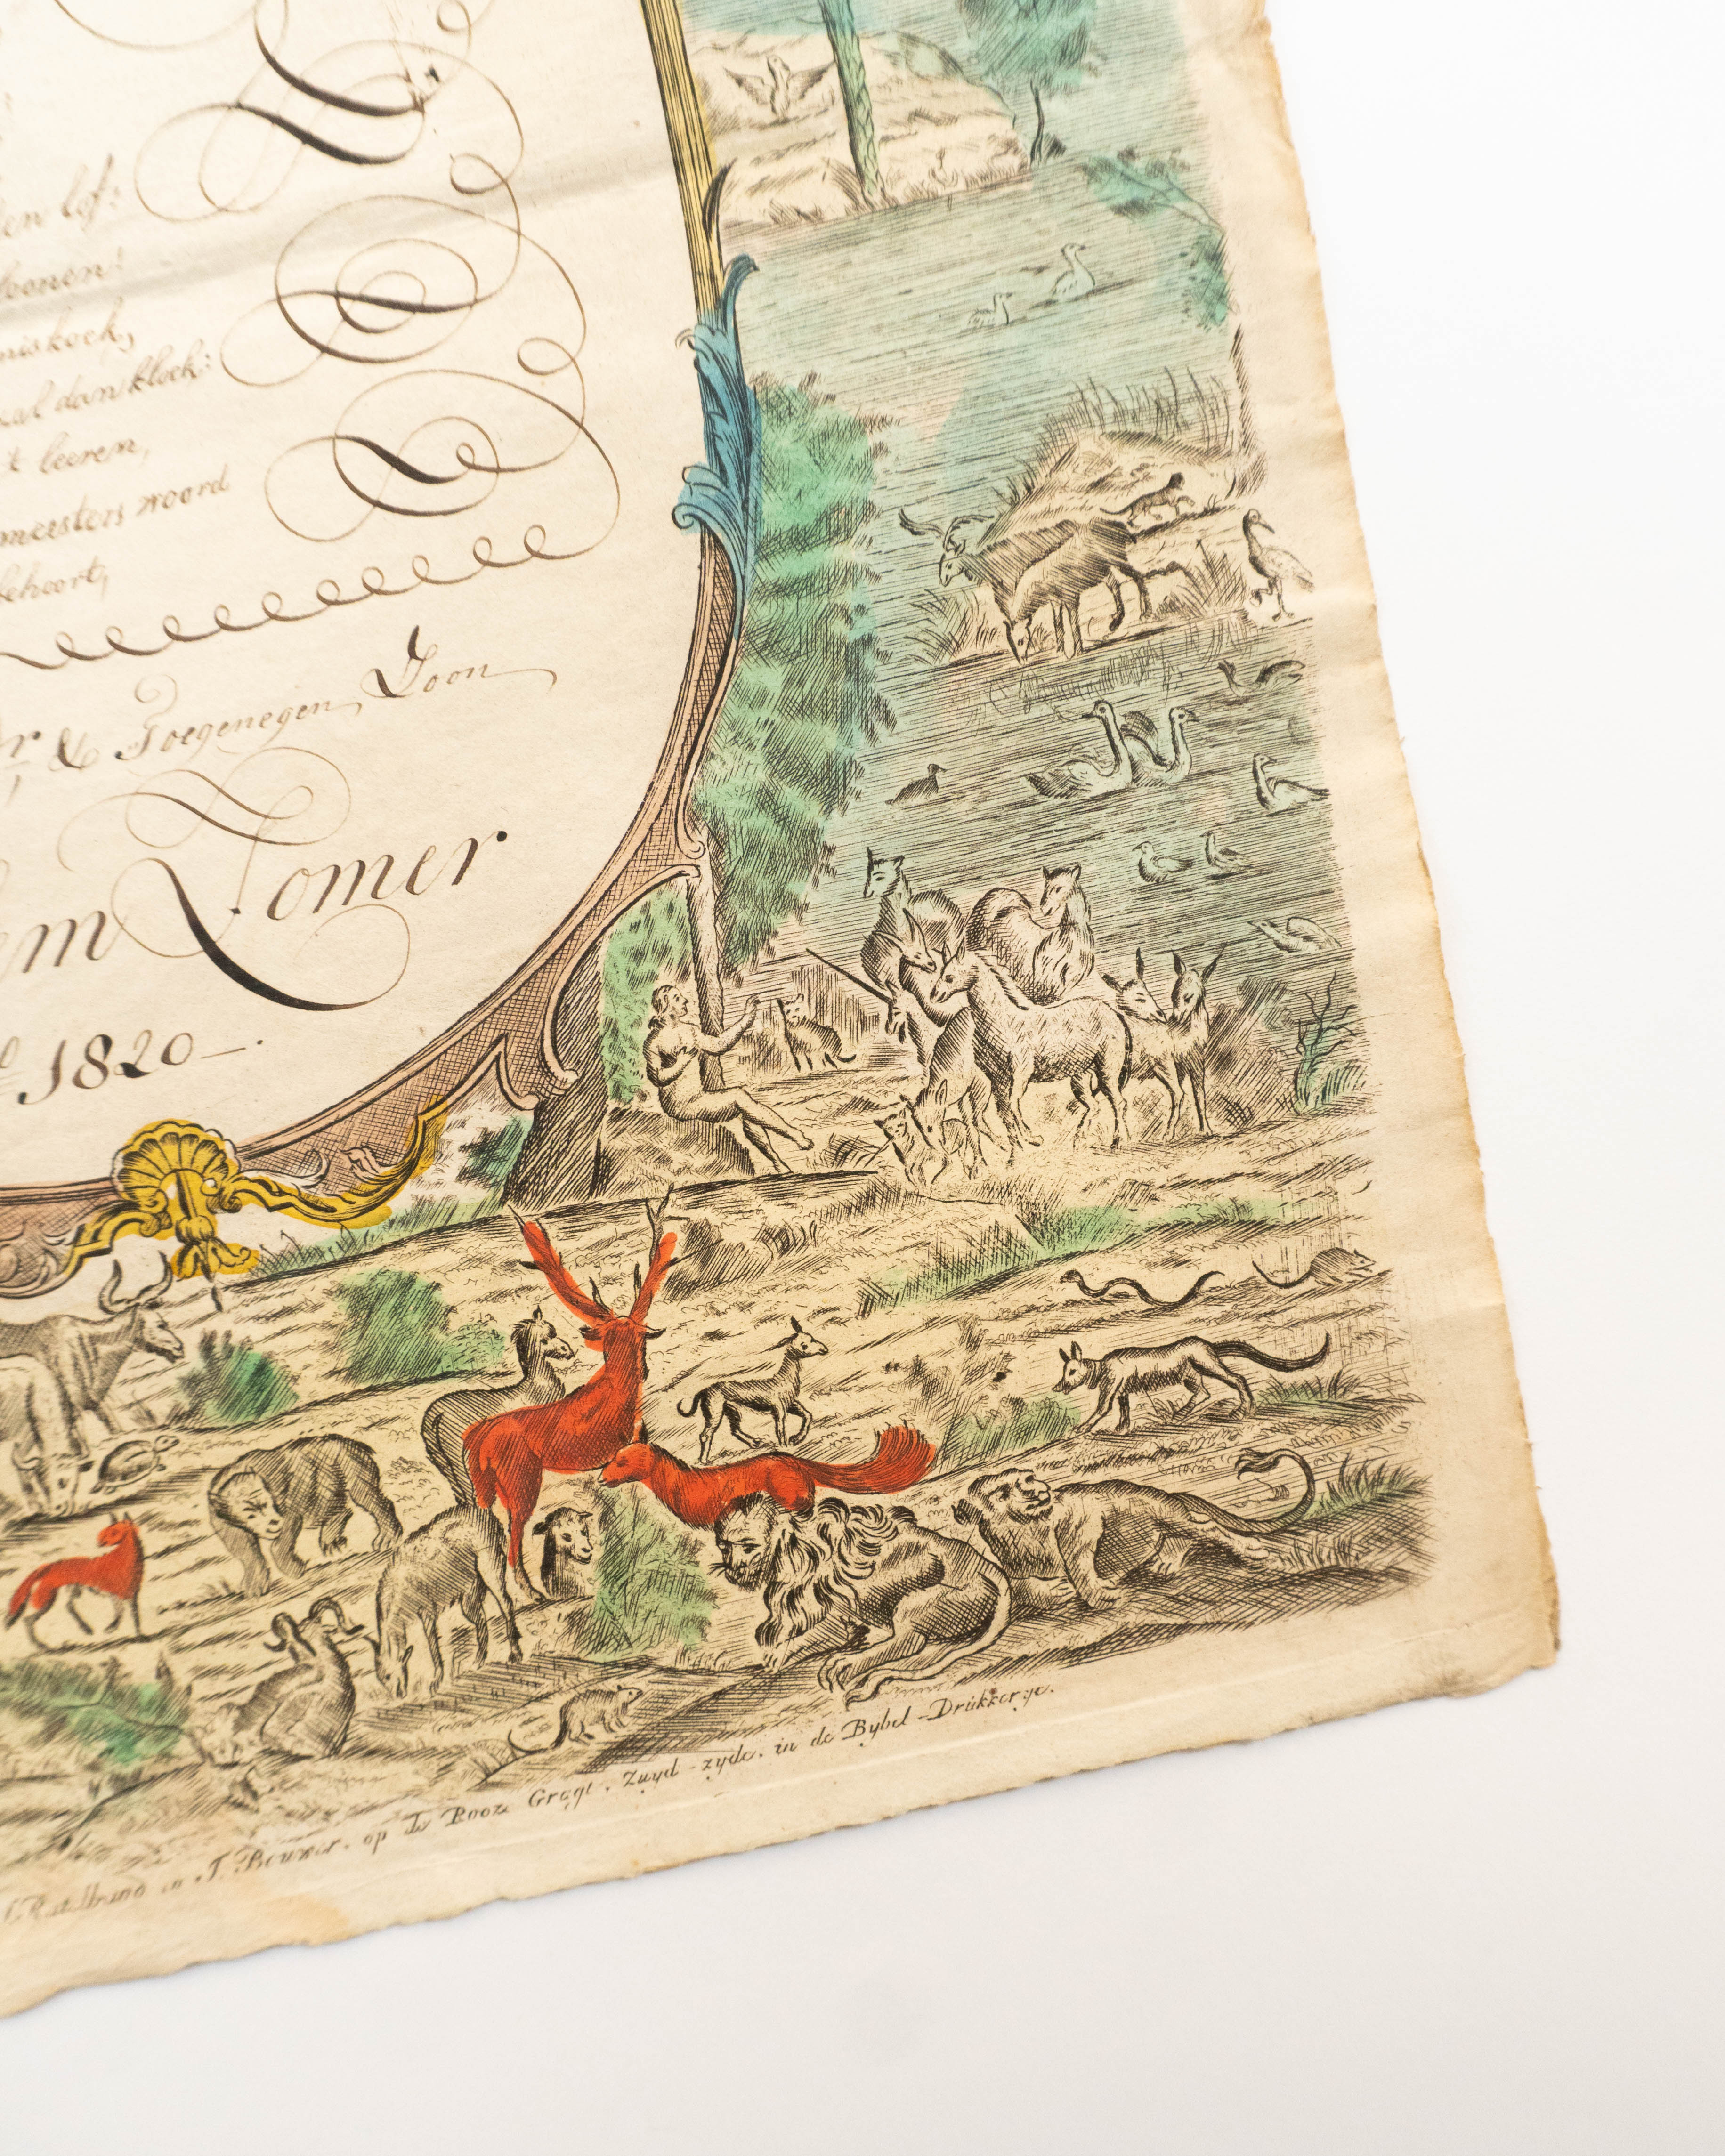 en lof:
oonen!
niskoek,
al dan kloek:
't leeren,
meesters woord
behoort,
& Toegenegen Zoon
m Zomer
1820
in J. Bouwer. op de Rooze Gragt. Zuyd-zyde. in de Bybel-Drukkerye.